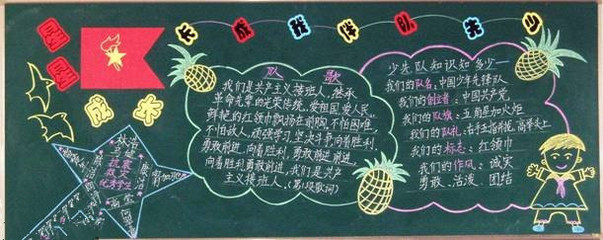 少先队伴我成长
成长
队 歌
我们是共产主义接班人,继承
革命先辈的光荣传统,爱祖国,爱人民
鲜艳的红领巾飘扬在前胸,不怕困难,
不怕敌人,顽强学习,坚决斗争,向着胜利,
勇敢前进,向着胜利,勇敢前进,前进,
向着胜利勇敢前进,我们是共产
主义接班人。
少先队知识知多少
我们的队名:中国少年先锋队
我们的创立者:中国共产党
我们的队旗:五角星加火炬
我们的队礼:右手五指并拢,高举头上
我们的标志:红领巾
我们的作风:诚实
勇敢、活泼、团结
优秀学生